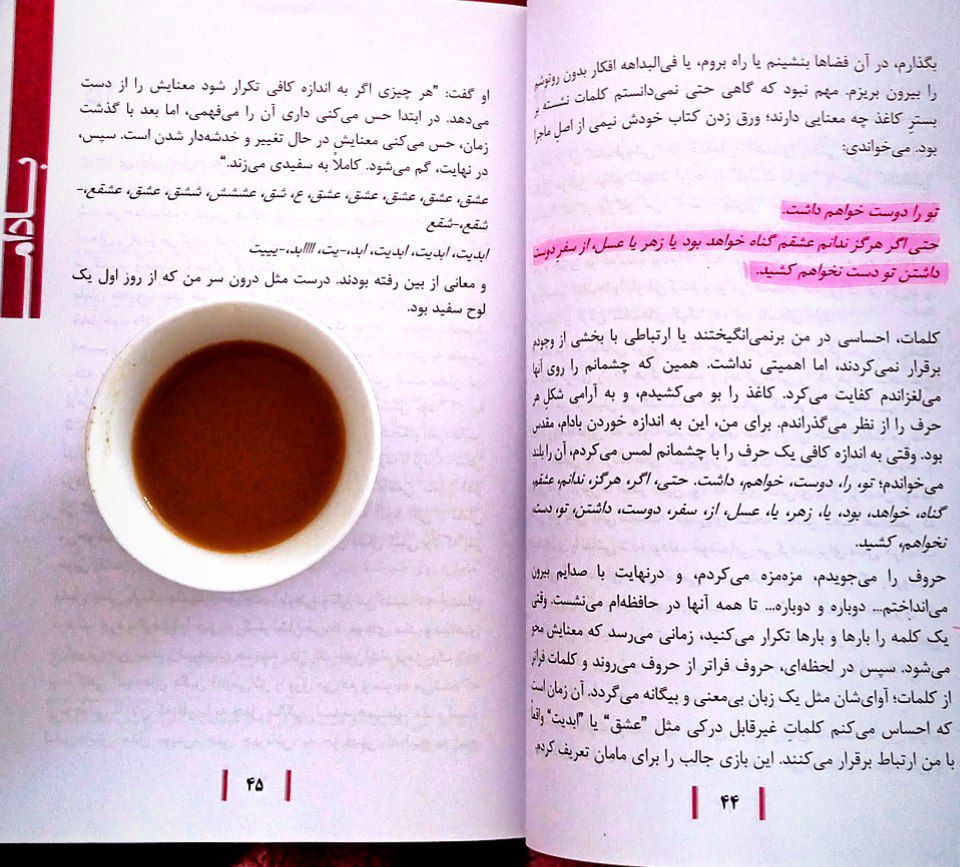 بگذارم، در آن فضاها بنشینم یا راه بروم، یا فی‌البداهه افکار بدون روتوشم
را بیرون بریزم. مهم نبود که گاهی حتی نمی‌دانستم کلمات نشسته بر
بستر کاغذ چه معنایی دارند؛ ورق زدن کتاب خودش نیمی از اصلِ ماجرا
بود. می‌خواندی:
تو را دوست خواهم داشت.
حتی اگر هرگز ندانم عشقم گناه خواهد بود یا زهر یا عسل، از سفر دوست
داشتن تو دست نخواهم کشید.
کلمات، احساسی در من برنمی‌انگیختند یا ارتباطی با بخشی از وجودم
برقرار نمی‌کردند، اما اهمیتی نداشت. همین که چشمانم را روی آنها
می‌لغزاندم کفایت می‌کرد. کاغذ را بو می‌کشیدم، و به آرامی شکلِ هر
حرف را از نظر می‌گذراندم. برای من، این به اندازه خوردن بادام، مقدس
بود. وقتی به اندازه کافی یک حرف را با چشمانم لمس می‌کردم، آن را بلند
می‌خواندم؛ تو، را، دوست، خواهم، داشت. حتی، اگر، هرگز، ندانم، عشقم،
گناه، خواهد، بود، یا، زهر، یا، عسل، از، سفر، دوست، داشتن، تو، دست،
نخواهم، کشید.
حروف را می‌جویدم، مزه‌مزه می‌کردم، و درنهایت با صدایم بیرون
می‌انداختم... دوباره و دوباره... تا همه آنها در حافظه‌ام می‌نشست. وقتی
یک کلمه را بارها و بارها تکرار می‌کنید، زمانی می‌رسد که معنایش محو
می‌شود. سپس در لحظه‌ای، حروف فراتر از حروف می‌روند و کلمات فراتر
از کلمات؛ آوای‌شان مثل یک زبان بی‌معنی و بیگانه می‌گردد. آن زمان است
که احساس می‌کنم کلماتِ غیرقابل درکی مثل "عشق" یا "ابدیت" واقعاً
با من ارتباط برقرار می‌کنند. این بازی جالب را برای مامان تعریف کردم.
۴۴
بادام
او گفت: "هر چیزی اگر به اندازه کافی تکرار شود معنایش را از دست
می‌دهد. در ابتدا حس می‌کنی داری آن را می‌فهمی، اما بعد با گذشت
زمان، حس می‌کنی معنایش در حال تغییر و خدشه‌دار شدن است. سپس،
در نهایت، گم می‌شود. کاملاً به سفیدی می‌زند."
عشق، عشق، عشق، عشق، عشق، ع، شق، عششش، ششق، عشق، عشقع،-
شقع،-شقع
ابدیت، ابدیت، ابدیت، ابد،-یت، اااابد،-ییبت
و معانی از بین رفته بودند. درست مثل درون سر من که از روز اول یک
لوح سفید بود.
۴۵